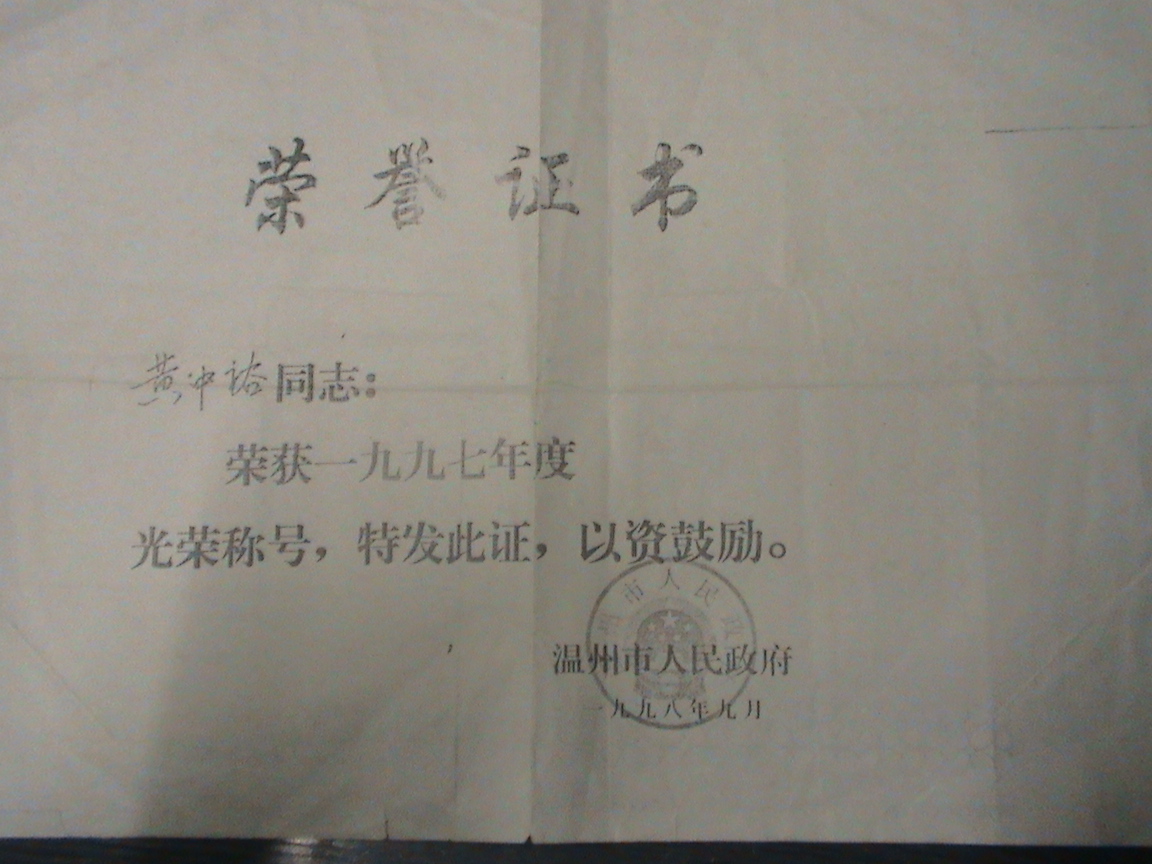 荣誉证书
黄中谘同志：
荣获一九九七年度
光荣称号，特发此证，以资鼓励。
州市人民政
温州市人民政府
一九九八年九月